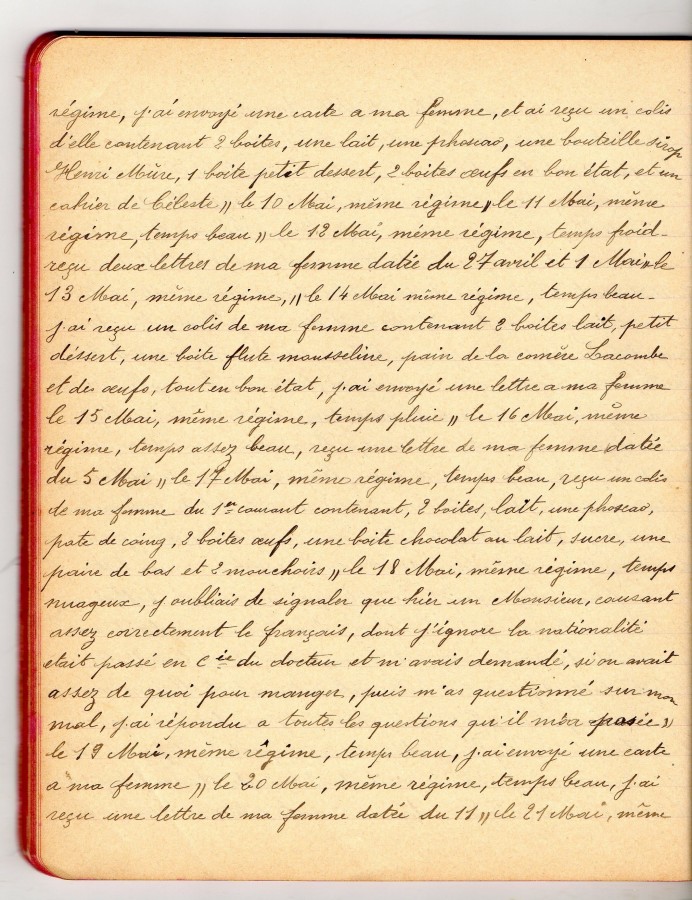 régime, j'ai envoyé une carte a ma femme, et ai reçu un colis
d'elle contenant 2 boites, une lait, une phoscao, une bouteille sirop
Henri Mûre, 1 boite petit dessert, 2 boites œufs en bon état, et un
cahier de Céleste " le 10 Mai, même régime " le 11 Mai, même
régime, temps beau " le 12 Mai, même régime, temps froid -
reçu deux lettres de ma femme datée du 27 avril et 1 Mai " le
13 Mai, même régime, " le 14 Mai même régime, temps beau -
j'ai reçu un colis de ma femme contenant 2 boites lait, petit
déssert, une boite flute mousseline, pain de la comère Lacombe
et des œufs, tout en bon état, j'ai envoyé une lettre a ma femme
le 15 Mai, même régime, temps pluie " le 16 Mai, même
régime, temps assez beau, reçu une lettre de ma femme datée
du 5 Mai " le 17 Mai, même régime, temps beau, reçu un colis
de ma femme du 1er courant contenant, 2 boites, lait, une phoscao,
pate de coing, 2 boites œufs, une boite chocolat au lait, sucre, une
paire de bas et 2 mouchoirs " le 18 Mai, même régime, temps
nuageux, j'oubliais de signaler que hier un Monsieur, causant
assez correctement le français, dont j'ignore la nationalité
etait passé en Cie du docteur et m'avais demandé, si on avait
assez de quoi pour manger, puis m'as questionné sur mon
mal, j'ai répondu a toutes les questions qu'il m'a posée "
le 19 Mai, même régime, temps beau, j'ai envoyé une carte
a ma femme " le 20 Mai, même régime, temps beau, j'ai
reçu une lettre de ma femme datée du 11 " le 21 Mai, même